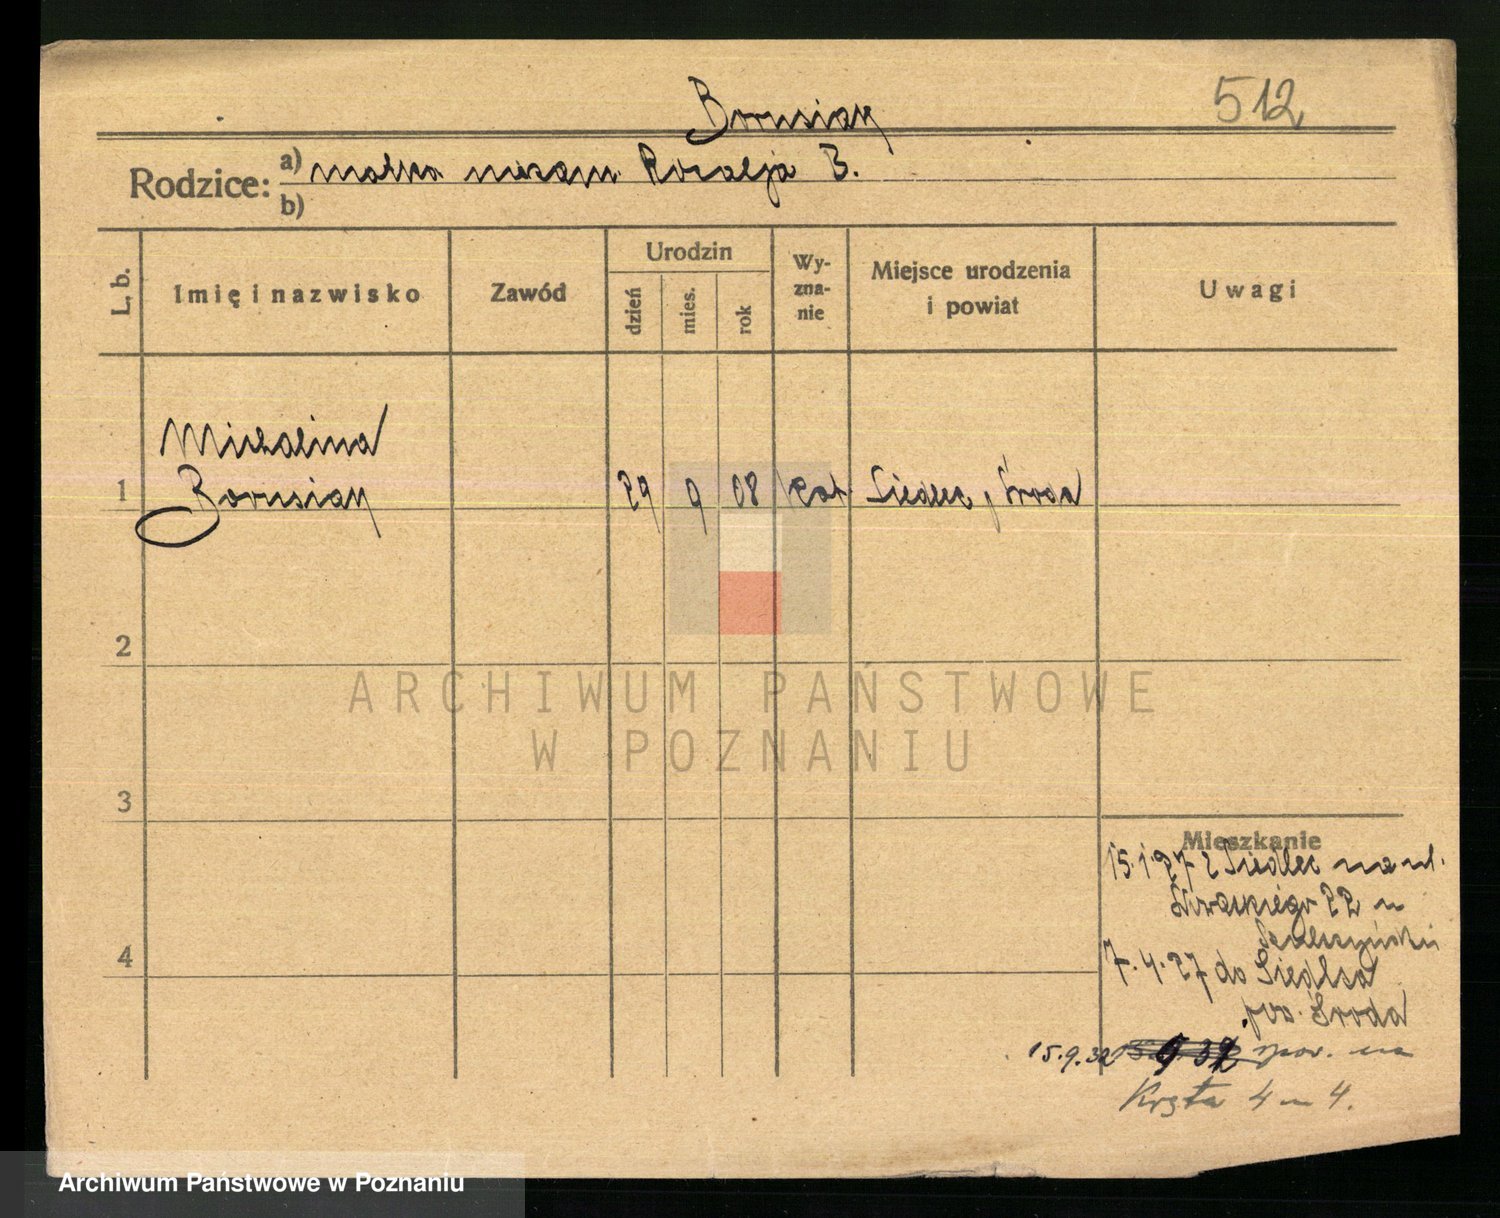 Borusiak
512
Rodzice: a) matka niezam. Rozalja B.
b)
L. b.
Imię i nazwisko
Zawód
Urodzin
dzień
mies.
rok
Wy-
zna-
nie
Miejsce urodzenia
i powiat
Uwagi
Michalina
1 Borusiak 29 9 08 kat Siedlec, Środa
2
3
4
ARCHIWUM PAŃSTWOWE
W POZNANIU
Mieszkanie
15.1.27 z Siedlec na ul.
22 u
7.4.27 do Siedlca
pow. Środa
15.9.32 9 32 spow. na
4 m 4.
Archiwum Państwowe w Poznaniu